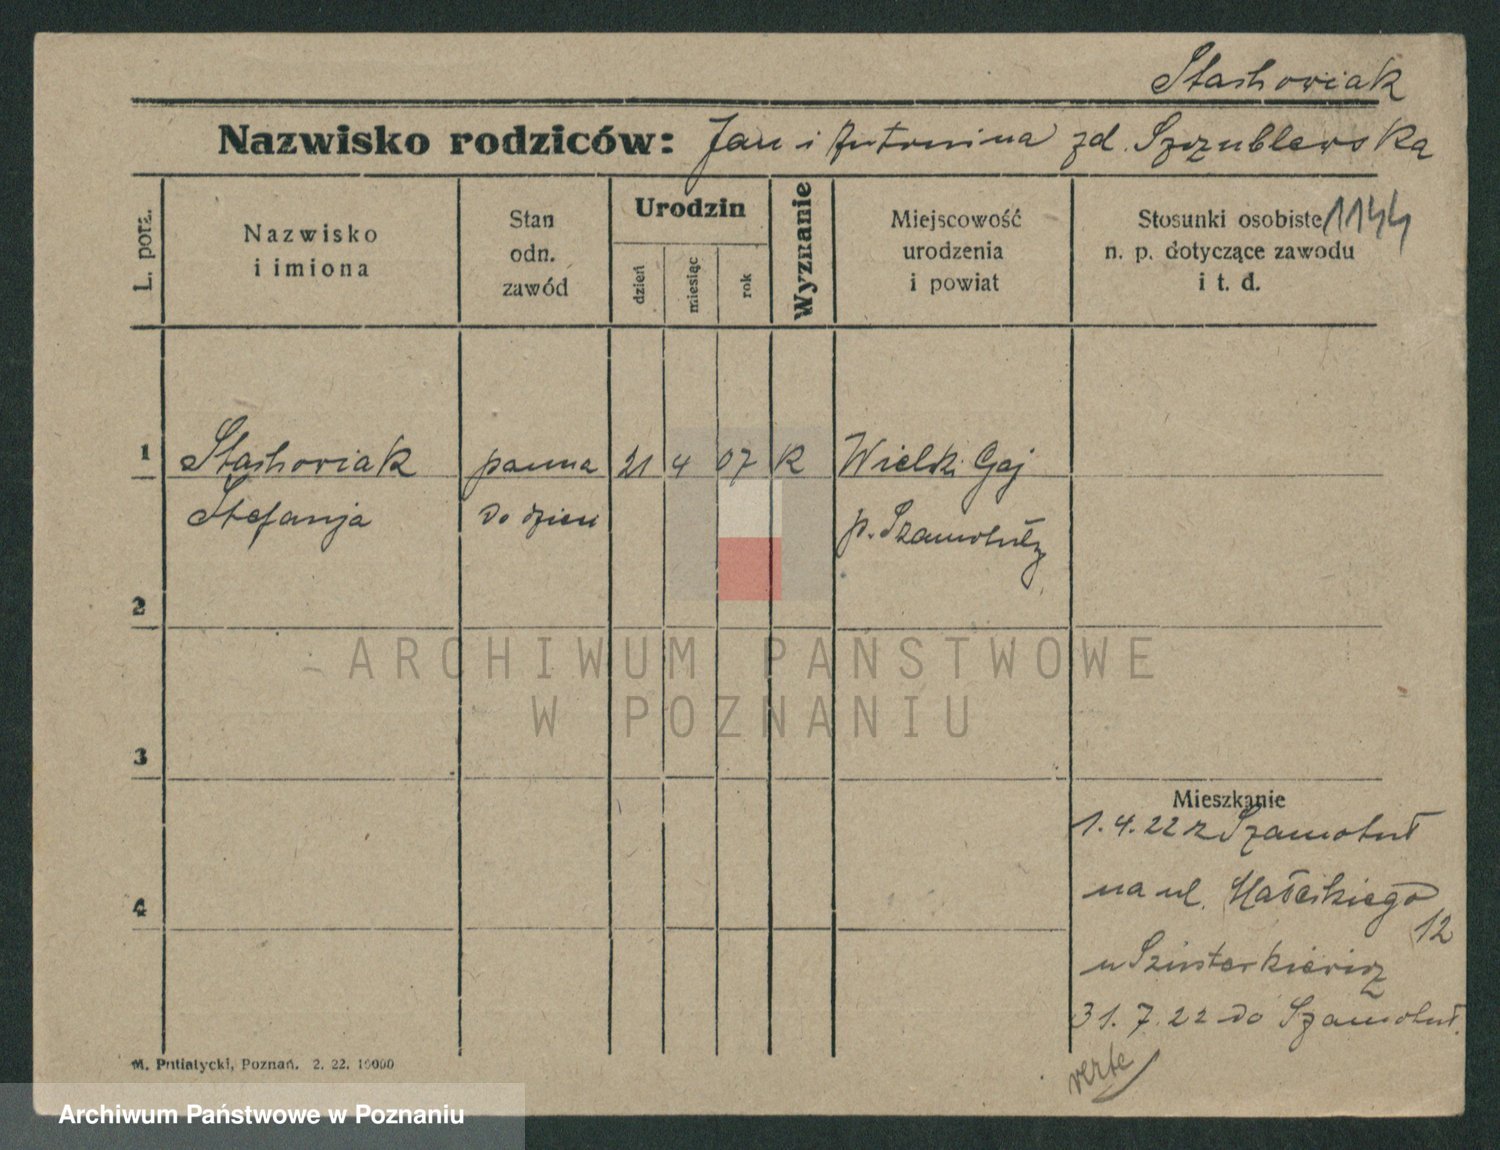 Stachowiak
Nazwisko rodziców: Jan i Antonina zd. Szczublewska
L. porz.
Nazwisko
i imiona
Stan
odn.
zawód
Urodzin
dzień
miesiąc
rok
Wyznanie
Miejscowość
urodzenia
i powiat
Stosunki osobiste
n. p. dotyczące zawodu
i t. d.
1144
1 Stachowiak panna 21 4 07 K Wielki Gaj
Stefanja do dzieci p. Szamotuły
2
3
4
Mieszkanie
1.4.22 z Szamotuł
na ul. Małeckiego
12
u
31.7.22 do Szamotuł.
verte
M. Putiatycki, Poznań. 2. 22. 10000
ARCHIWUM PAŃSTWOWE
W POZNANIU
Archiwum Państwowe w Poznaniu